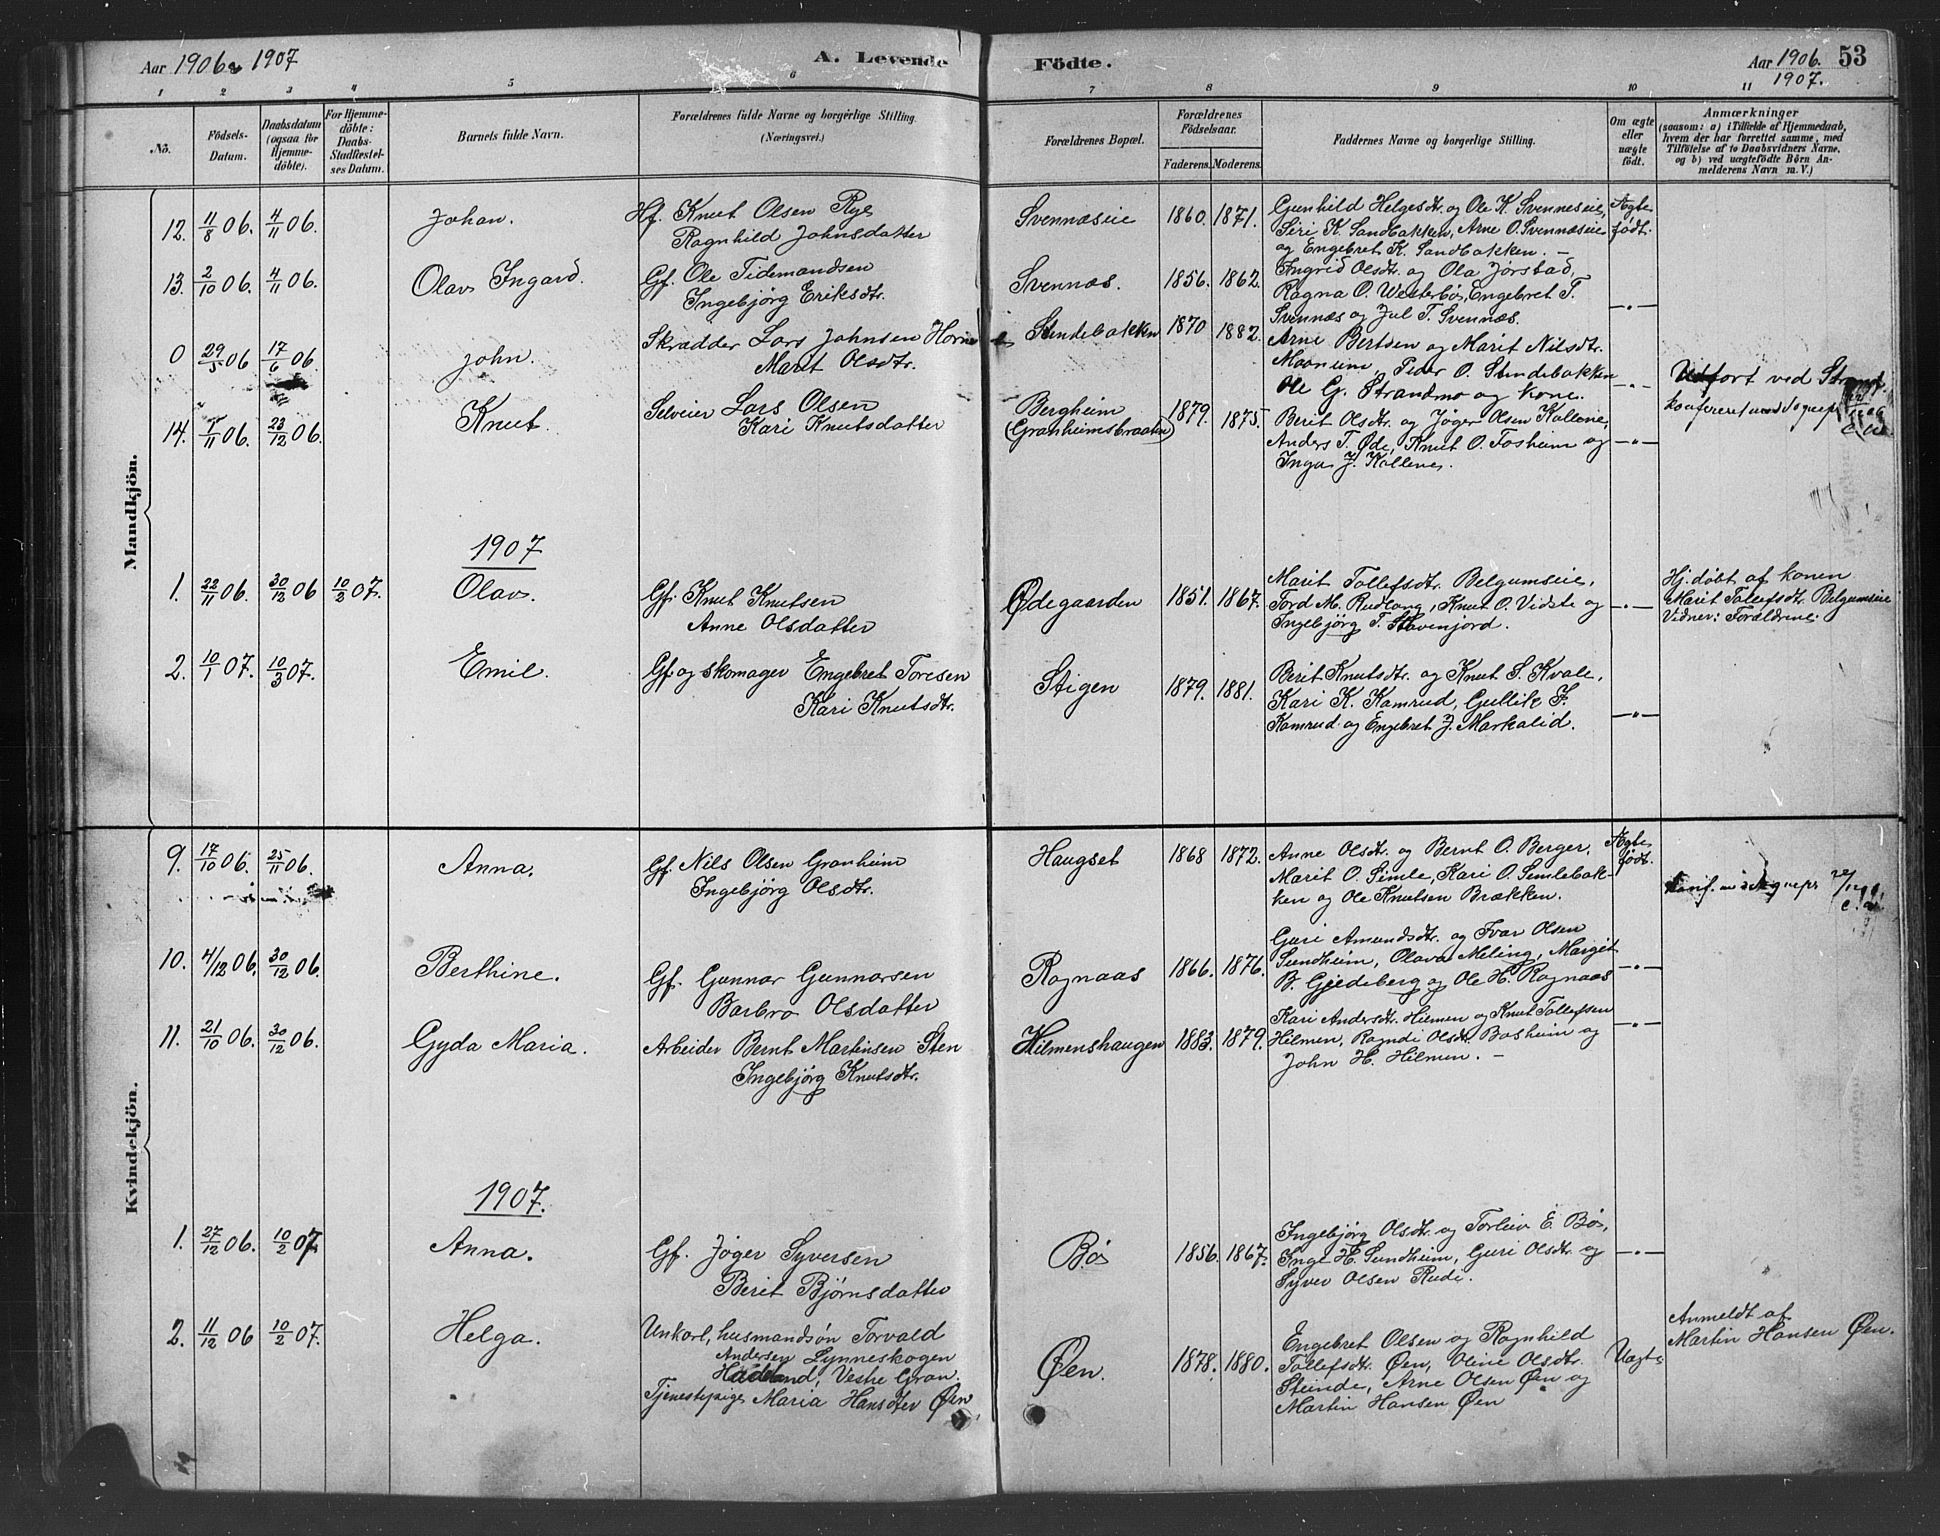 Aar 1906 1907
A. Levende Födte.
Aar 1906. 1907.
53
1 2 3 4 5 6 7 8 9 10 11
No.
Födsels-Datum.
Daabsdatum (ogsaa for Hjemme-döbte).
For Hjemme-döbte: Daabs-Stadfæstel-ses Datum.
Barnets fulde Navn.
Forældrenes fulde Navne og borgerlige Stilling. (Næringsvei.)
Forældrenes Bopæl.
Forældrenes Födselsaar.
Faderens. Moderens.
Faddernes Navne og borgerlige Stilling.
Om ægte eller uægte födt.
Anmærkninger
(saasom: a) i Tilfælde af Hjemmedaab,
hvem der har forrettet samme, med
Tilföielse af to Daabsvidners Navne,
og b) ved uægtefödte Börn An-
melderens Navn m. V.)
Mandkjön.
12. 11/8 06. 4/11 06. Johan. Gf. Knut Olsen Rye Svennæseie 1860. 1871. Gunhild Helgesdtr. og Ole K. Svenneseie, Ægte
Ragnhild Johnsdatter Siri K. Sandbakken, Arne O. Svennæseie født.
og Engebret K. Sandbakken. –
13. 2/10 06. 4/11 06. Olav Ingard. Gf. Ole Tidemandsen Svennæs. 1856. 1862. Ingrid Olsdtr. og Ola Jørstad,
Ingebjørg Eriksdtr. Ragna O. Westerbø, Engebret T. —„—
Svennæs og Jul T. Svennæs.
0 29/5 06 17/6 06. John. Skrædder Lars Johnsen Horne Stendebakken 1870 1882. Arne Bertsen og Marit Nilsdtr.
Marit Olsdtr. Moonium, Peder O. Stendebakken —„—
Ole G. Strandmo og kone.
14. 1/11 06. 23/12 06. Knut. Selveier Lars Olsen Bergheim 1879. 1875. Berit Olsdtr. og Jøger Olsen Kollene,
Kari Knutsdatter (Granheimsbraaten) Anders T. Øde, Knut O. Fosheim og —„—
Inga J. Kollene.
1907
1. 22/11 06. 30/12 06 10/2 07. Olav. Gf. Knut Knutsen Ødegaarden 1851. 1867. Marit Tollefsdtr. Belgumseie, Hj. døbt af konen
Anne Olsdatter Tord M. Rudlong, Knut O. Vidste og —„— Marit Tollefsdtr. Belgumseie
Ingebjørg T. Stavenjord. Vidner: Forældrene.
2. 10/1 07. 10/3 07. Emil. Gf. og skomager Engebret Toresen Stigen 1879. 1881. Berit Knutsdtr. og Knut S. Kvale,
Kari Knutsdtr. Kari K. Kamrud, Gullik F. —„—
Kamrud og Engebret J. Markalid.
Kvindekjön.
9. 17/10 06. 25/11 06. Anna. Gf. Nils Olsen Granheim Haugset 1868 1872. Anne Olsdtr. og Bernt O. Berger, Ægte
Ingebjørg Olsdtr. Marit O. Simle, Kari O. Semlebak- født.
ken og Ole Knutsen Brækken.
10. 4/12 06. 30/12 06. Berthine. Gf. Gunnar Gunnarsen Rognaas 1866. 1876. Guri Amundsdtr. og Ivar Olsen
Barbro Olsdatter Sundheim, Olava Meling, Margit —„—
B. Gjedeberg og Ole H. Rognaas
11. 21/10 06. 30/12 06. Gyda Maria. Arbeider Bernt Martinsen Sten Hilmenshaugen 1883. 1879. Kari Andersdtr. Hilmen og Knut Tollefsen —„—
Ingebjørg Knutsdtr. Hilmen, Ragndi Olsdtr. Bosheim og
John H. Hilmen. –
1907.
1. 27/12 06. 10/2 07 Anna. Gf. Jøger Syversen Bø 1856. 1867. Ingebjørg Olsdtr. og Torleiv E. Bø,
Berit Bjørnsdatter Inge H. Sundheim, Guri Olsdtr. og —„—
Syver Olsen Rudi.
2. 11/12 06 10/2 07. Helga. Unkarl, husmandsøn Torvald Øen. 1878. 1880. Engebret Olsen og Ragnhild Uægte Anmeldt af
Andersen Lynneskogen Tollefsdtr. Øen, Oline Olsdtr. Martin Hansen Øen.
Hadeland, Vestre Gran. Steinde, Arne Olsen Øen og
Tjenestepige Maria Hansdtr Øen Martin Hansen Øen